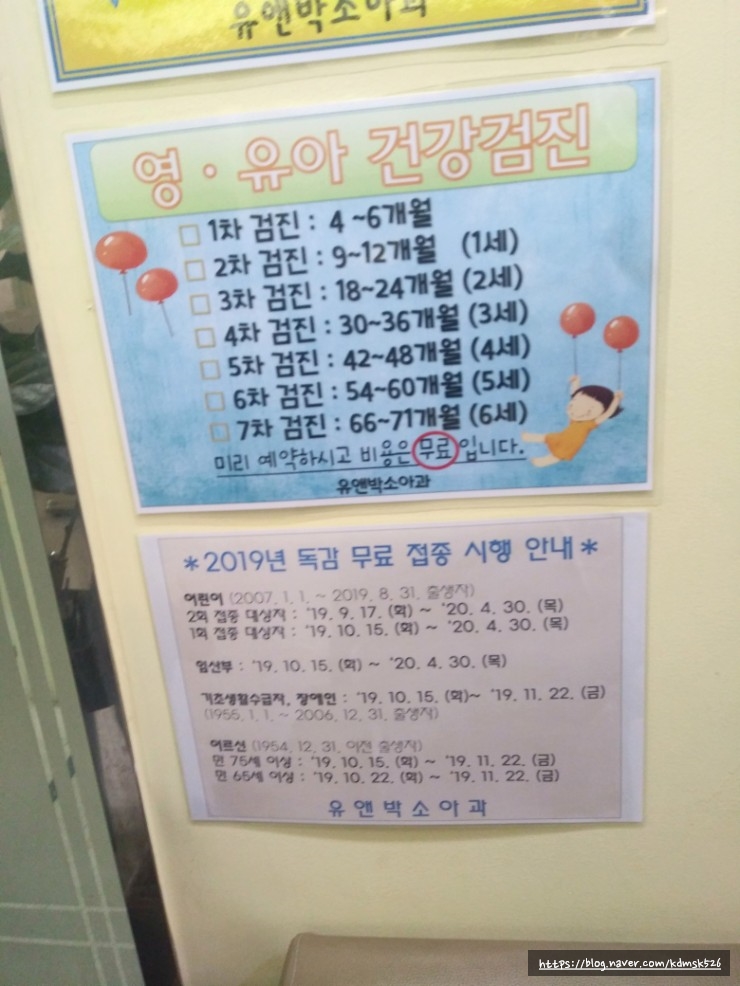 유앤박소아과
영·유아 건강검진
□ 1차 검진 : 4 ~6개월
□ 2차 검진 : 9~12개월 (1세)
□ 3차 검진 : 18~24개월 (2세)
□ 4차 검진 : 30~36개월 (3세)
□ 5차 검진 : 42~48개월 (4세)
□ 6차 검진 : 54~60개월 (5세)
□ 7차 검진 : 66~71개월 (6세)
미리 예약하시고 비용은 무료입니다.
유앤박소아과
*2019년 독감 무료 접종 시행 안내*
어린이 (2007. 1. 1. ~ 2019. 8. 31. 출생자)
2회 접종 대상자 : '19. 9. 17. (화) ~ '20. 4. 30. (목)
1회 접종 대상자 : '19. 10. 15. (화) ~ '20. 4. 30. (목)
임산부 : '19. 10. 15. (화) ~ '20. 4. 30. (목)
기초생활수급자, 장애인 : '19. 10. 15. (화)~ '19. 11. 22. (금)
(1955. 1. 1. ~ 2006. 12. 31. 출생자)
어르신 (1954. 12. 31. 이전 출생자)
만 75세 이상 : '19. 10. 15. (화) ~ '19. 11. 22. (금)
만 65세 이상 : '19. 10. 22. (화) ~ '19. 11. 22. (금)
유앤박소아과
https://blog.naver.com/kdmsk526